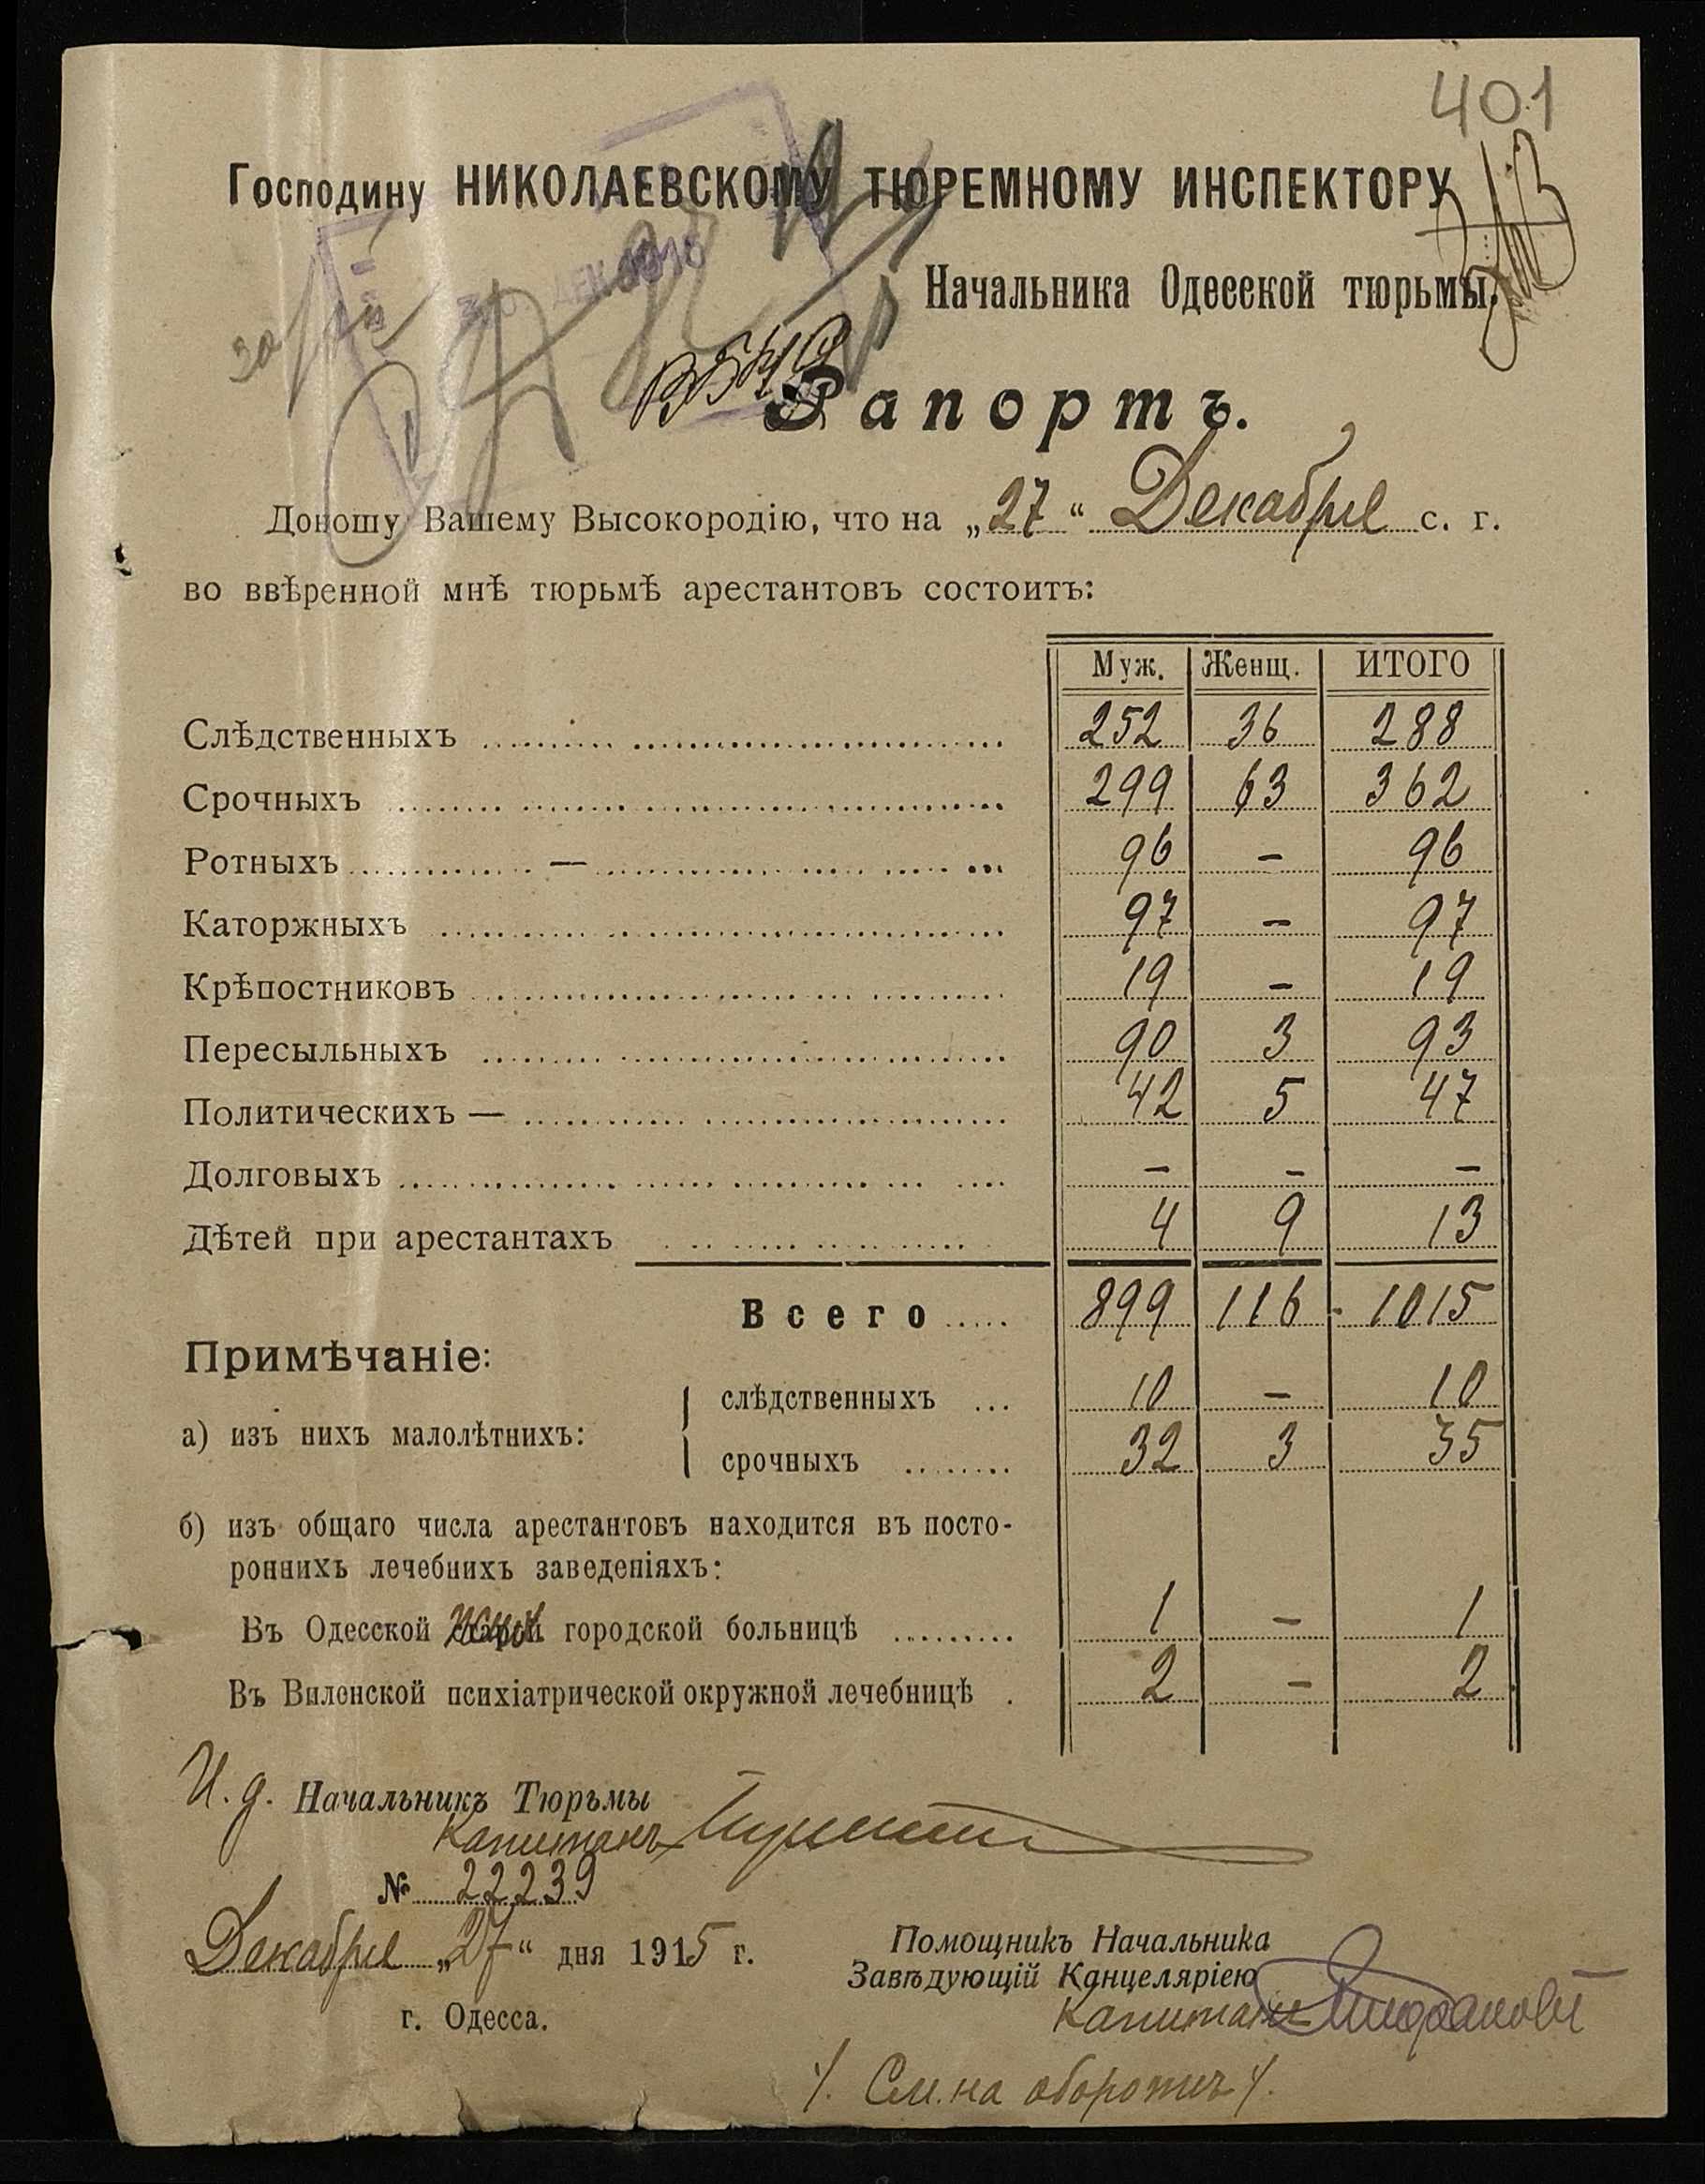 401
Господину НИКОЛАЕВСКОМУ ТЮРЕМНОМУ ИНСПЕКТОРУ
Начальника Одесской тюрьмы.
Рапортъ.
Доношу Вашему Высокородію, что на „27“ Декабря с. г.
во ввѣренной мнѣ тюрьмѣ арестантовъ состоитъ:
Муж. Женщ. ИТОГО
Слѣдственныхъ 252 36 288
Срочныхъ 299 63 362
Ротныхъ — 96 - 96
Каторжныхъ 97 - 97
Крѣпостниковъ 19 - 19
Пересыльныхъ 90 3 93
Политическихъ — 42 5 47
Долговыхъ - - -
Дѣтей при арестантахъ 4 9 13
Всего 899 116 - 1015
Примѣчаніе:
а) изъ нихъ малолѣтнихъ:
слѣдственныхъ 10 - 10
срочныхъ 32 3 35
б) изъ общаго числа арестантовъ находится въ посто-
роннихъ лечебнихъ заведеніяхъ:
Въ Одесской городской больницѣ 1 - 1
Въ Виленской психіатрической окружной лечебницѣ 2 - 2
И. д. Начальникъ Тюрьмы
Капитанъ
№ 22239
Декабря „27“ дня 1915 г.
г. Одесса.
Помощникъ Начальника
Завѣдующій Канцеляріею
Капитанъ
См. на оборотѣ